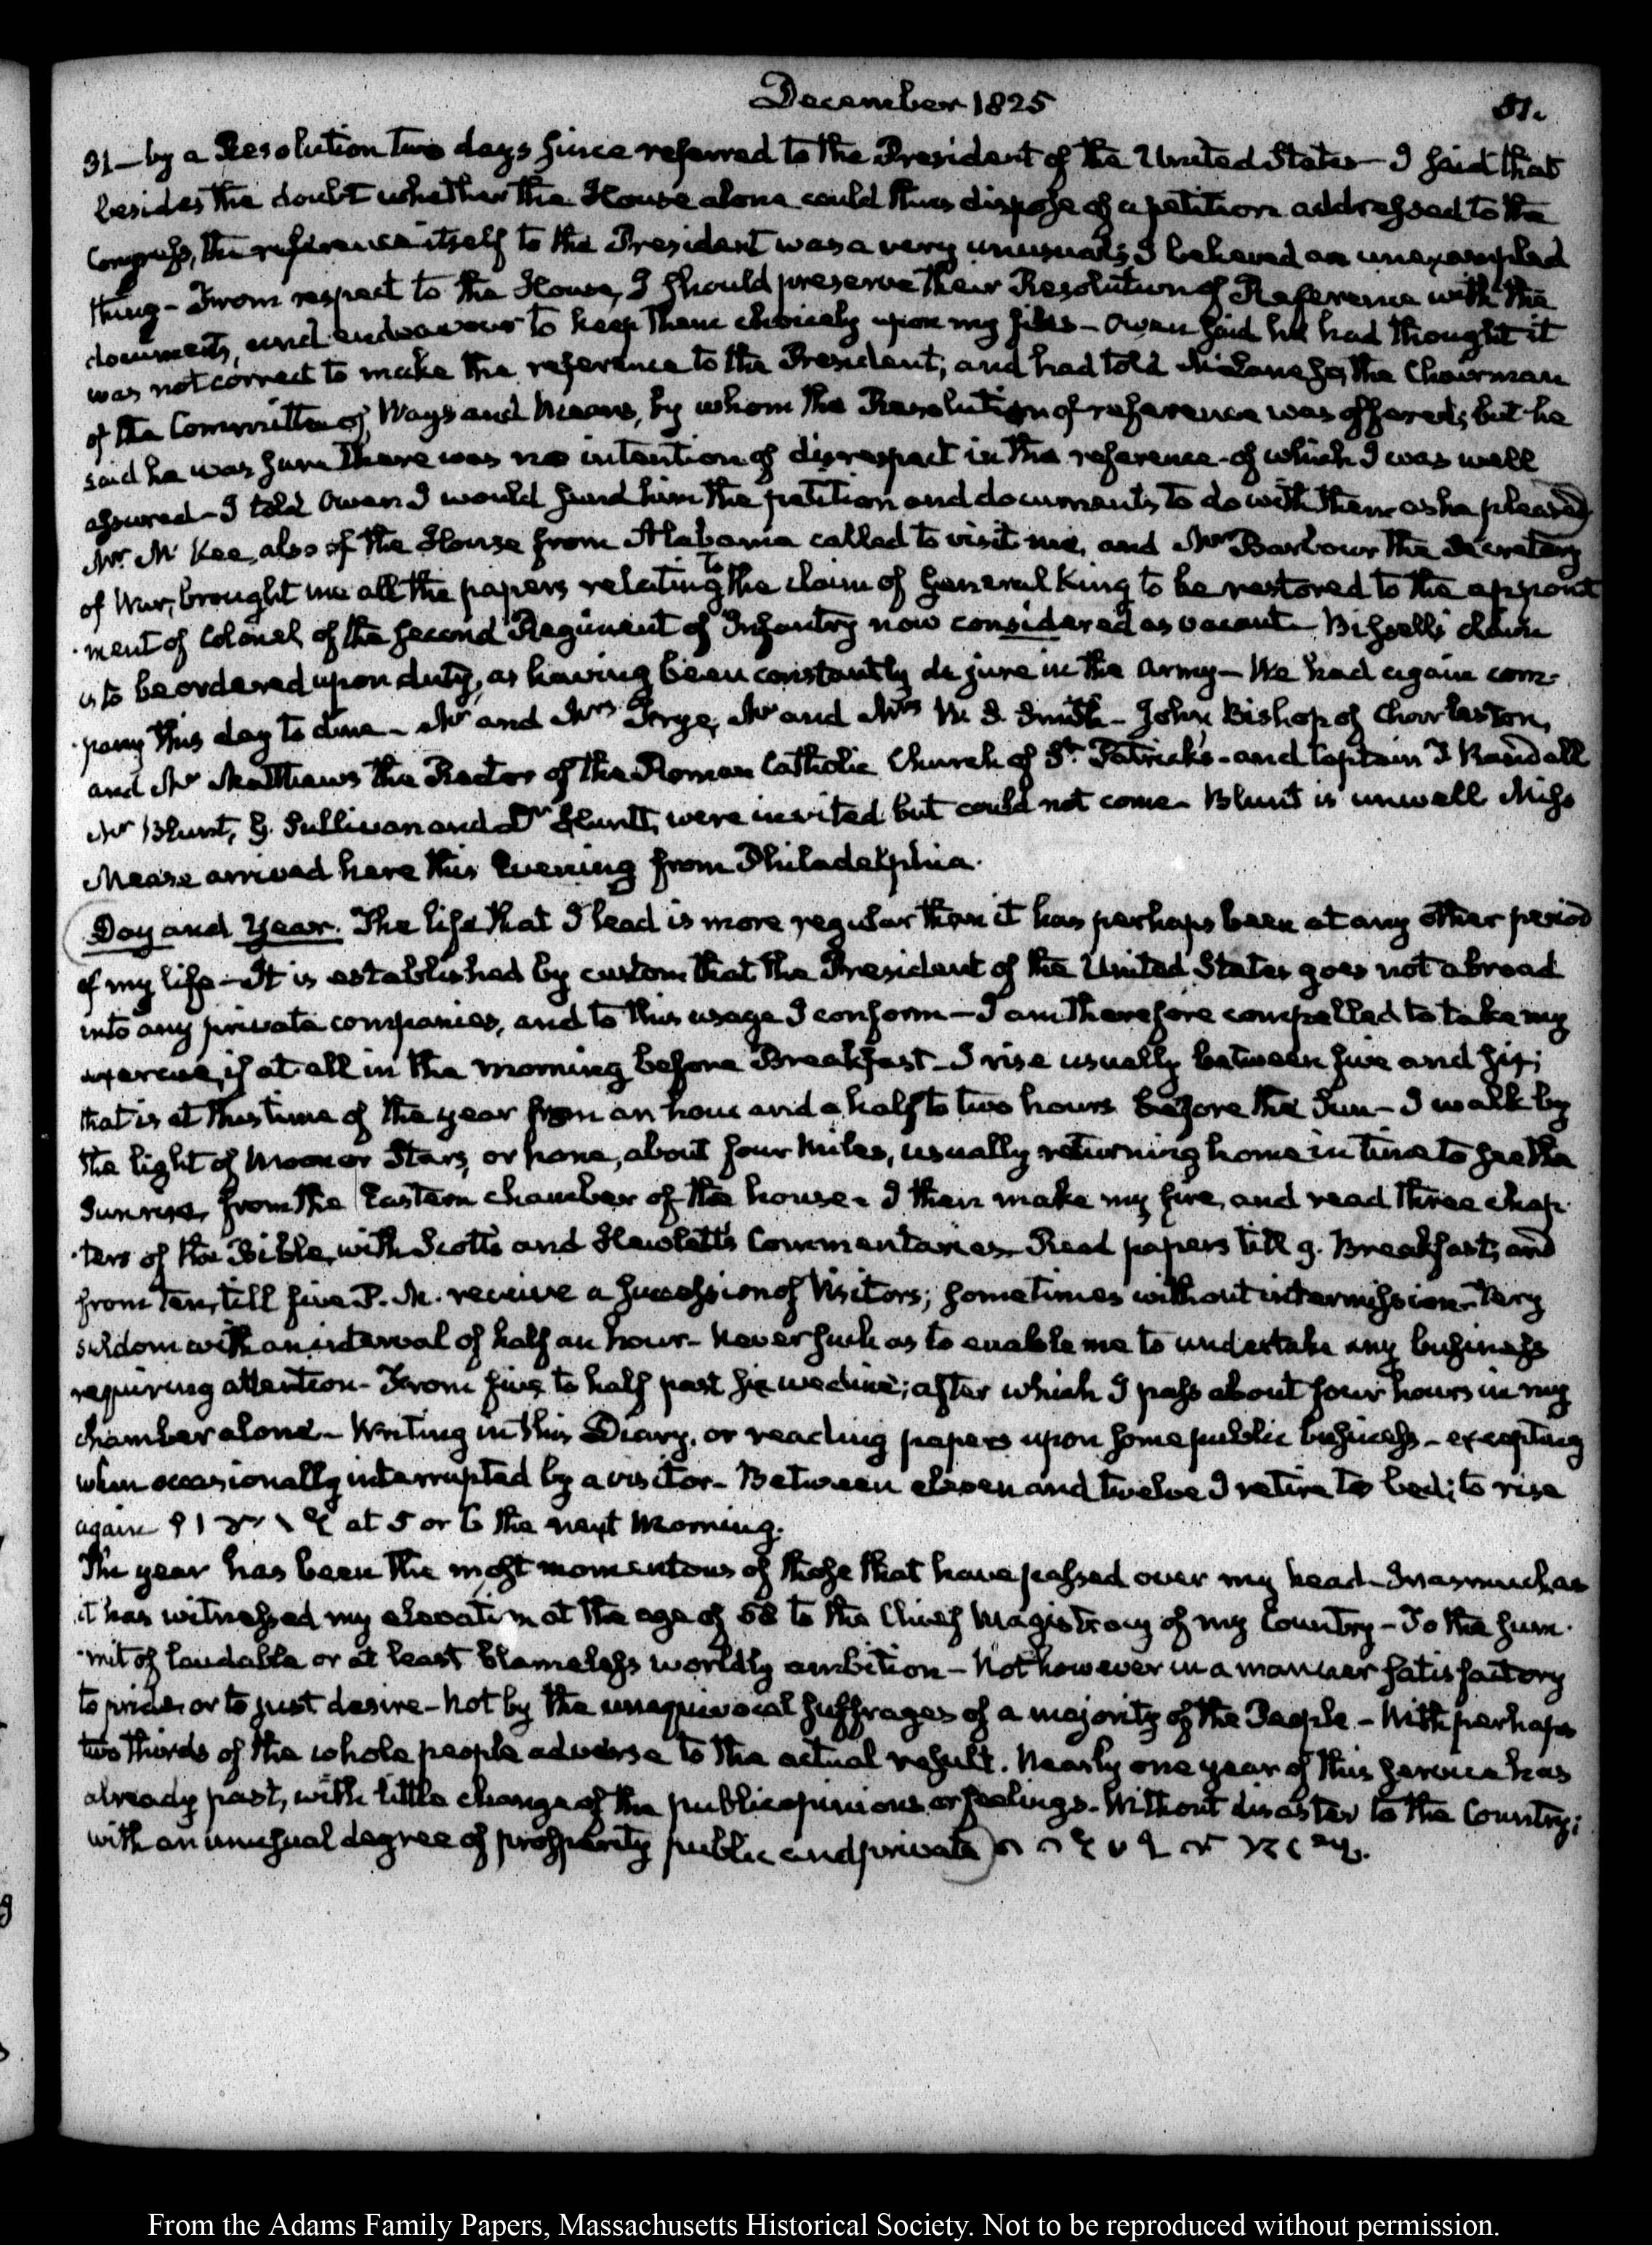 December 1825
51.
31— by a Resolution two days since referred to the President of the United States— I said that
besides the doubt whether the House alone could thus dispose of a petition addressed to the
Congress, the reference itself to the President was a very unusual; I believed an unexampled
thing— From respect to the House, I should preserve their Resolution of Reference with the
documents, and endeavour to keep them choicely upon my files— Owen said he had thought it
was not correct to make the reference to the President, and had told McLane so, the Chairman
of the Committee of Ways and Means, by whom the Resolution of reference was offered; but he
said he was sure there was no intention of disrespect in the reference— of which I was well
assured— I told Owen I would send him the petition and documents, to do with them as he pleased
Mr. McKee, also of the House from Alabama called to visit me, and Mr Barbour the Secretary
of War, brought me all the papers relating to the claim of General King to be restored to the appoint
ment of Colonel of the second Regiment of Infantry now considered as vacant— Bissell's claim
is to be ordered upon duty, as having been constantly de jure in the Army— We had again com-
pany this day to dine— Mr and Mrs Frye, Mr and Mrs W. S. Smith— John, Bishop of Charleston,
and Mr Matthews the Rector of the Roman Catholic Church of St. Patrick's— and Captain T. Randall
Mr Blunt, G. Sullivan and Dr Huntt, were invited but could not come— Blunt is unwell Miss
Mease arrived here this Evening from Philadelphia.
Day and Year. The life that I lead is more regular than it has perhaps been at any other period
of my life— It is established by custom that the President of the United States goes not abroad
into any private companies, and to this usage I conform— I am therefore compelled to take my
exercise, if at all in the morning before Breakfast— I rise usually between five and six;
that is at this time of the year from an hour and a half to two hours before the Sun— I walk by
the light of Moon or Stars, or none, about four Miles, usually returning home in time to see the
Sun rise, from the Eastern chamber of the house— I then make my fire, and read three chap
ters of the Bible, with Scott's and Hewlett's Commentaries— Read papers till 9. Breakfast, and
from ten, till five P. M. receive a succession of Visitors; sometimes without intermission— Very
seldom with an interval of half an hour— Never such as to enable me to undertake any business
requiring attention— From five to half past six we dine; after which I pass about four hours in my
chamber alone— Writing in this Diary, or reading papers upon some public business— excepting
when occasionally interrupted by a visitor— Between eleven and twelve I retire to bed; to rise
again at 5 or 6 the next Morning.
The year has been the most momentous of those that have passed over my head— Inasmuch as
it has witnessed my elevation at the age of 58 to the Chief Magistracy of my Country— To the sum
mit of laudable or at least blameless worldly ambition— Not however in a manner satisfactory
to pride, or to just desire— Not by the unequivocal suffrages of a majority of the People— With perhaps
two thirds of the whole people adverse to the actual result. Nearly one year of this service has
already past, with little change of the public opinions or feelings— Without disaster to the Country;
with an unusual degree of prosperity public and private
From the Adams Family Papers, Massachusetts Historical Society. Not to be reproduced without permission.